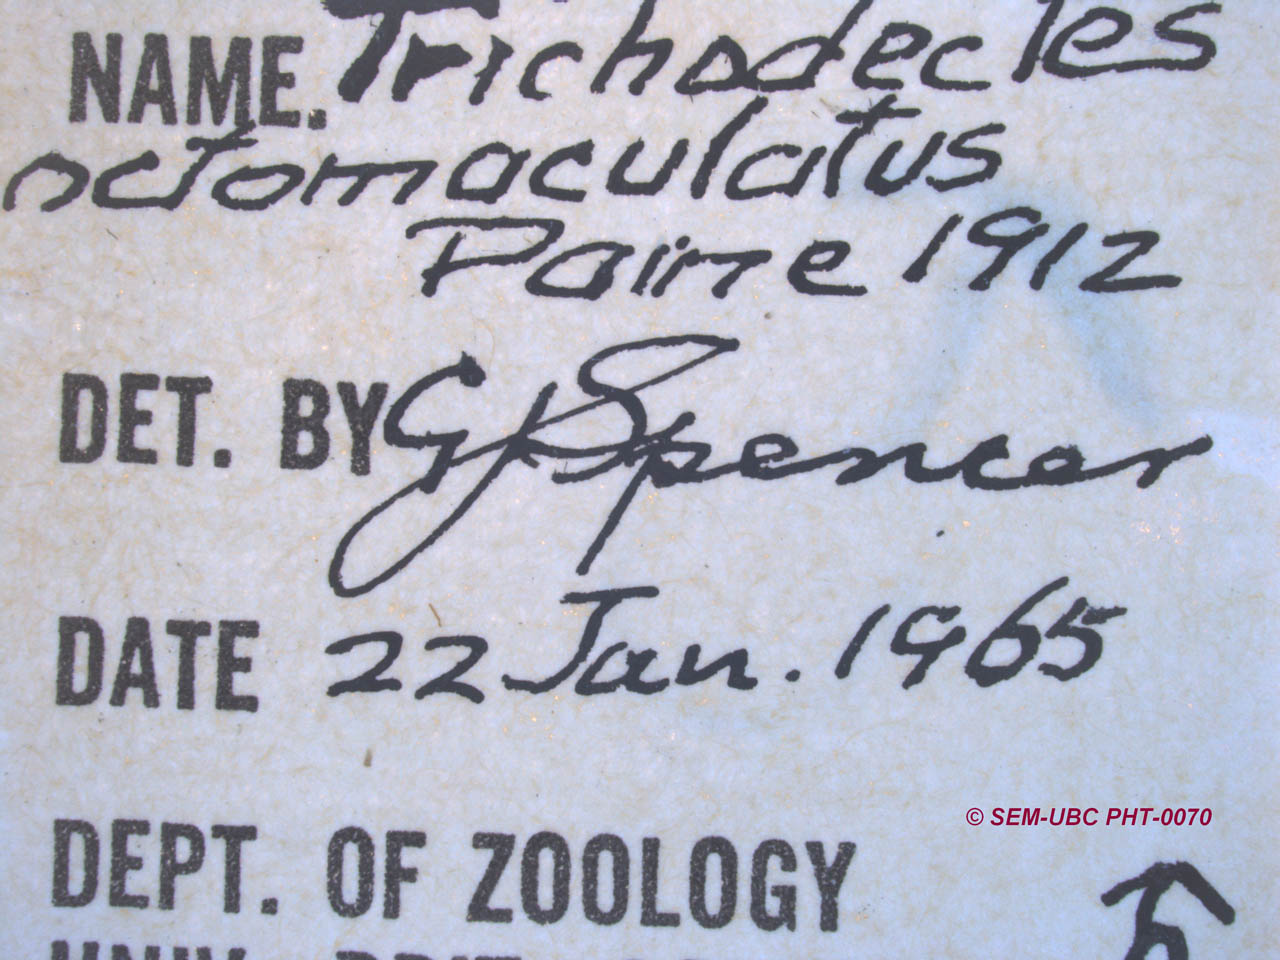 NAME. Trichodectes
octomaculatus
Paine 1912
DET. BY GJSpencer
DATE 22 Jan. 1965
© SEM-UBC PHT-0070
DEPT. OF ZOOLOGY
UNIV. BRIT. CO